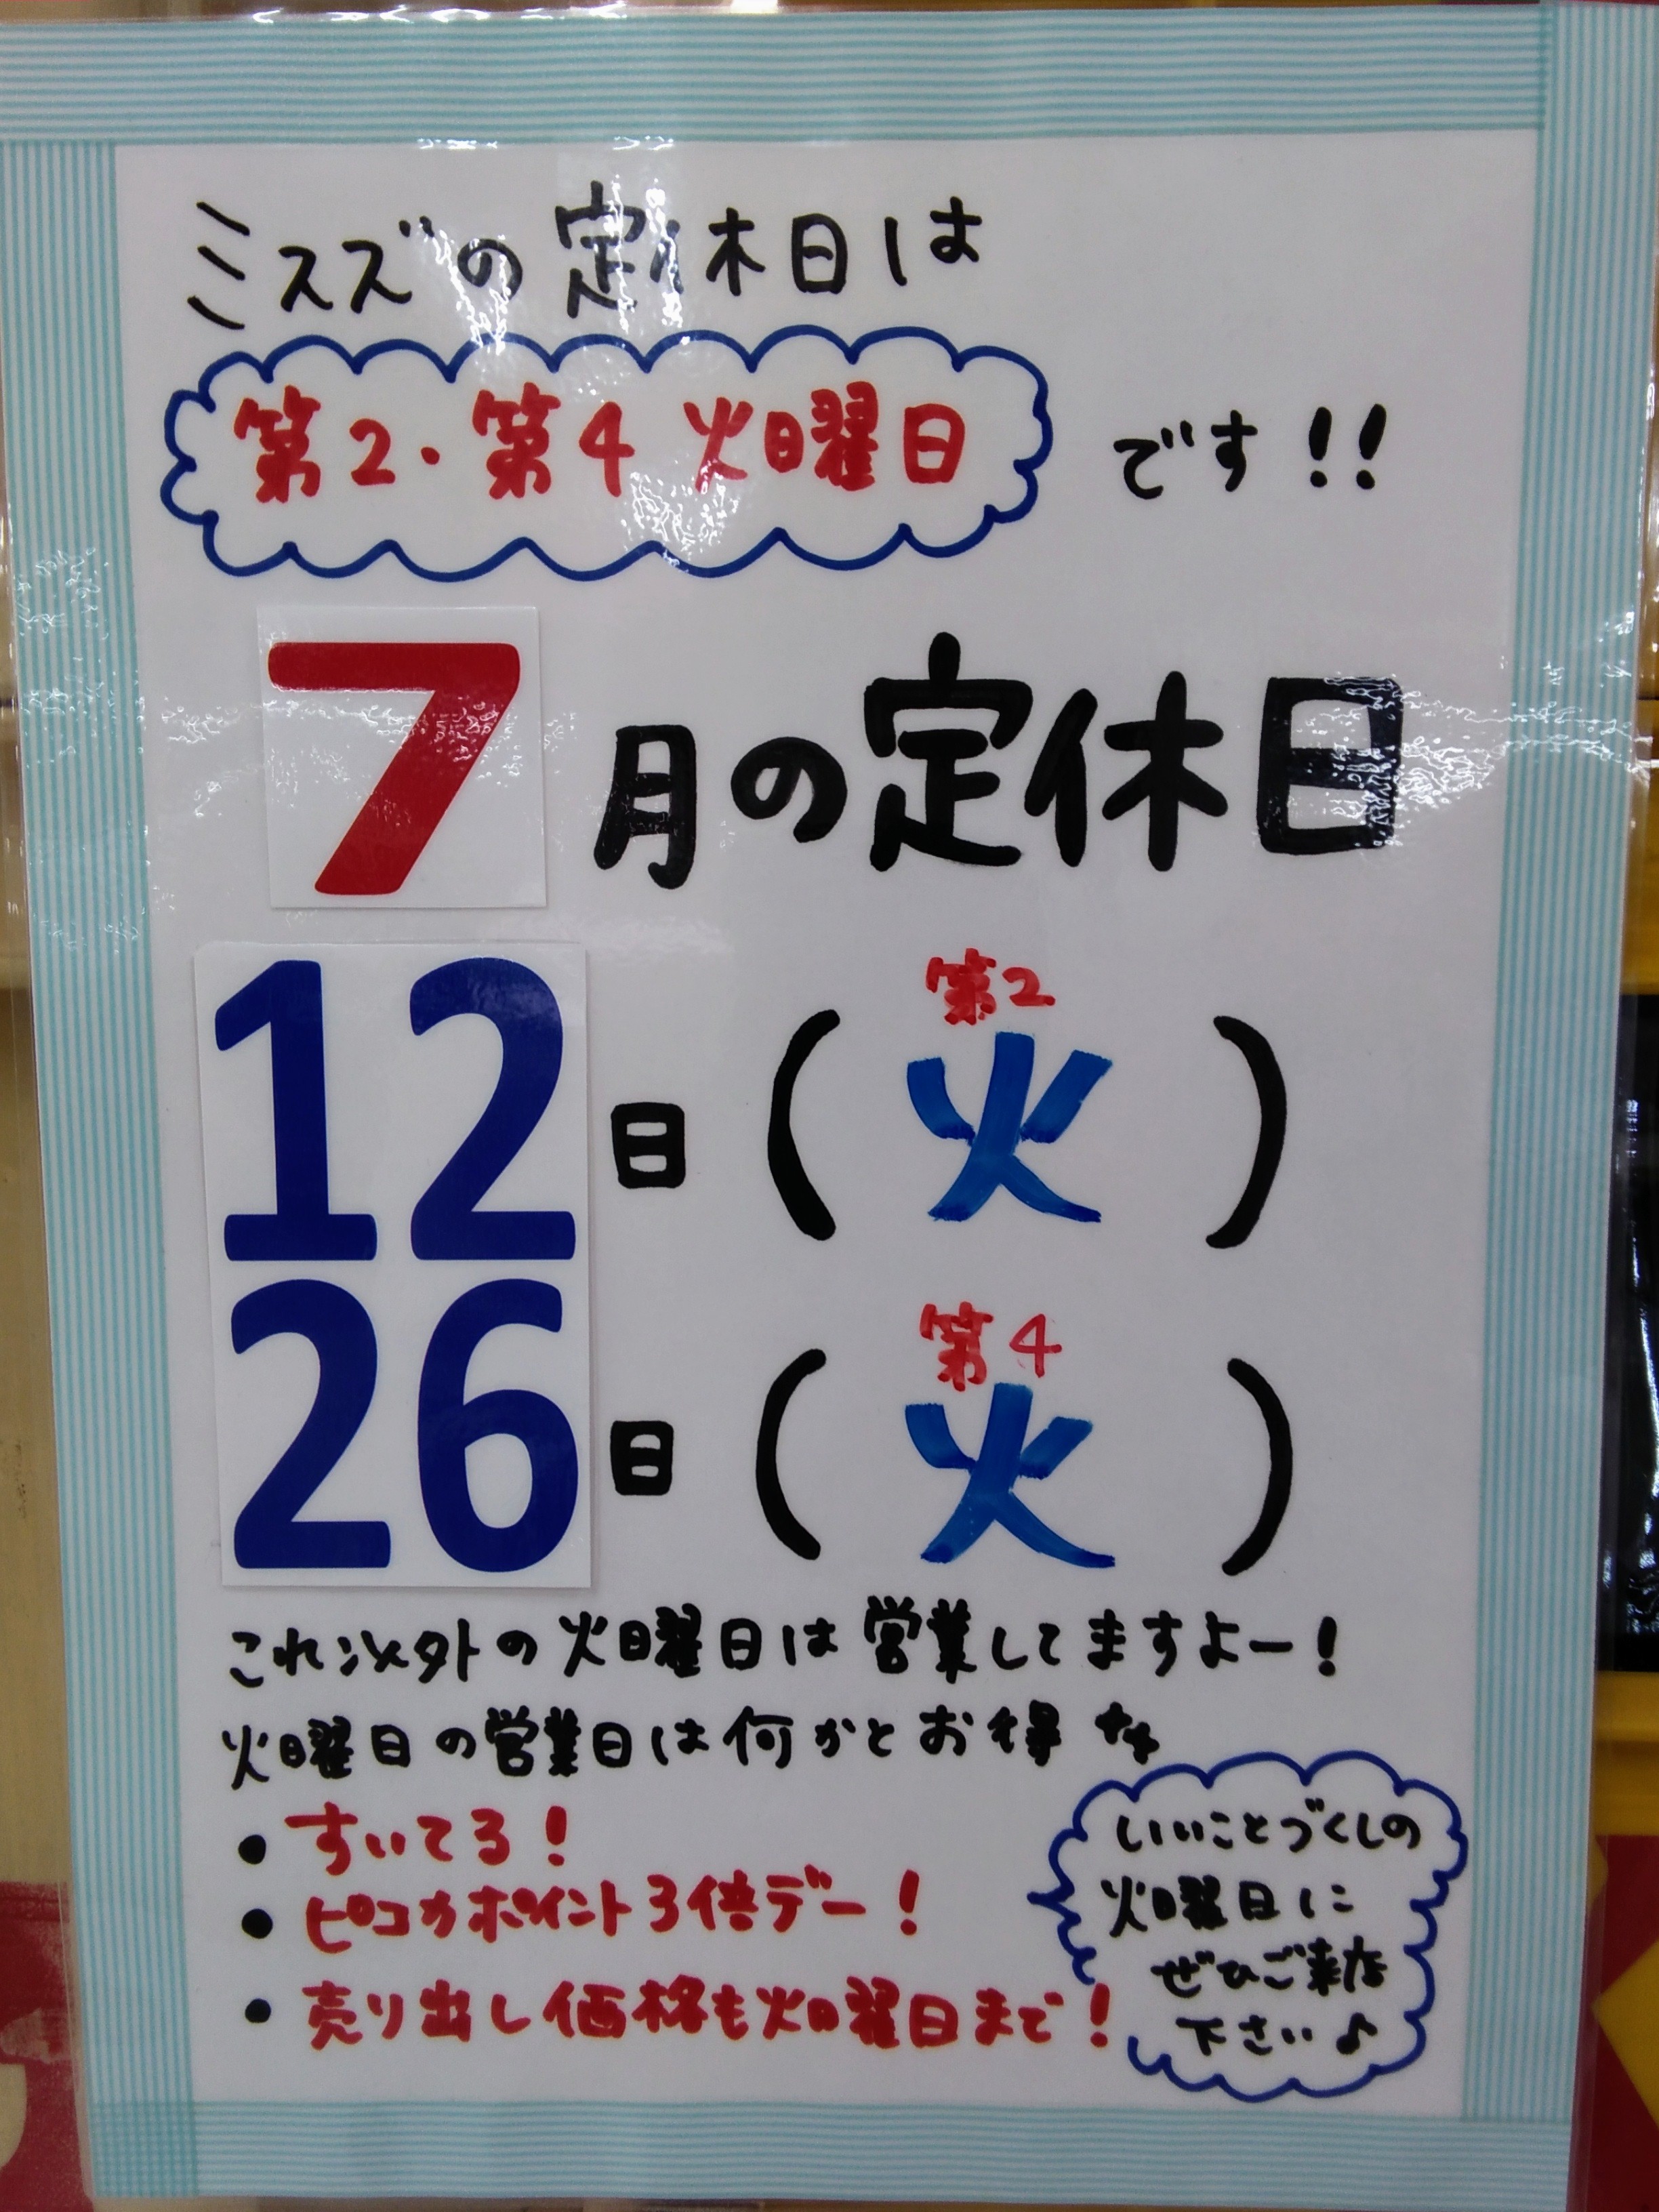 ミスズの定休日は
第2・第4 火曜日 です!!
7月の定休日
第2
12日(火)
第4
26日(火)
これ以外の火曜日は営業してますよー!
火曜日の営業日は何かとお得
・すいてる!
・ピコカポイント3倍デー!
・売り出し価格も火曜日まで!
いいことづくしの
火曜日に
ぜひご来店
下さい♪